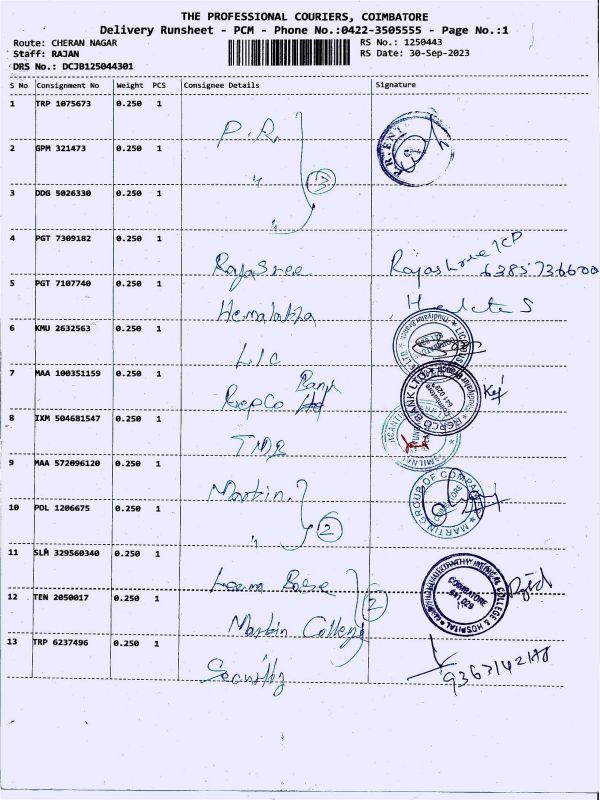 THE PROFESSIONAL COURIERS, COIMBATORE
Delivery Runsheet - PCM - Phone No.:0422-3505555 - Page No.:1
Route: CHERAN NAGAR
Staff: RAJAN
DRS No.: DCJB125044301
RS No.: 1250443
RS Date: 30-Sep-2023
S No Consignment No Weight PCS Consignee Details Signature
1 TRP 1075673 0.250 1
P.R.
2 GPM 321473 0.250 1
3
3 DDG 5026330 0.250 1
4 PGT 7309182 0.250 1
Rajasree
6385736600
5 PGT 7107740 0.250 1
Hemalatha
6 KMU 2632563 0.250 1
LIC
7 MAA 100351159 0.250 1
Bank
Repco
REPCO BANK LTD
8 IXM 504681547 0.250 1
TMB
9 MAA 572096120 0.250 1
Martin.
MARTIN GROUP OF COMPANIES
COIMBATORE
10 POL 1206675 0.250 1
2
11 SLM 329560340 0.250 1
Leema Rose
COLLEGE & HOSPITAL
COIMBATORE
641 029
12 TEN 2050017 0.250 1
2
Martin College
13 TRP 6237496 0.250 1
Security